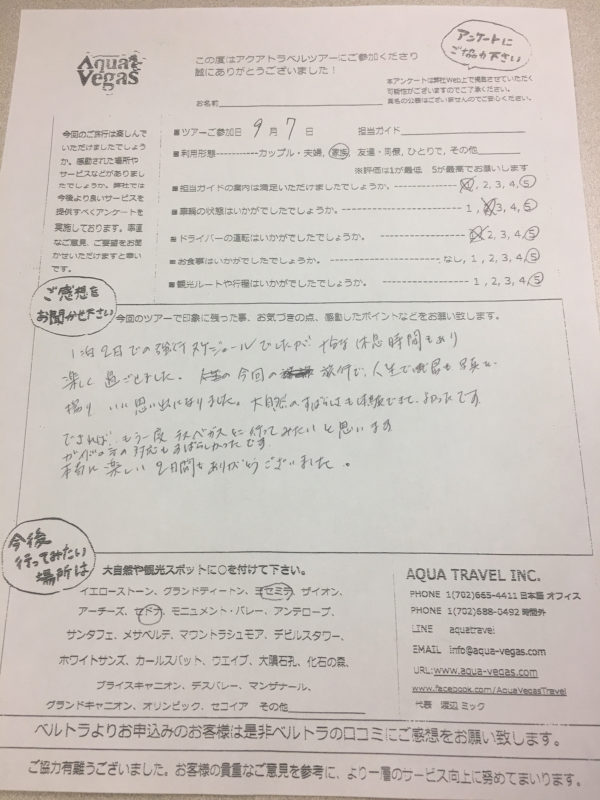 Aqua Vegas
この度はアクアトラベルツアーにご参加くださり
誠にありがとうございました！
アンケートに
ご協力下さい
本アンケートは弊社Web上で掲載させていただく
可能性がございますのでご了承ください。
実名の公表はございませんのでご安心ください。
お名前
今回のご旅行は楽しんで
いただけましたでしょう
か。感動された場所や
サービスなどがありまし
たでしょうか。弊社では
今後より良いサービスを
提供すべくアンケートを
実施しております。率直
なご意見、ご要望をお聞
かせいただけますと幸い
です。
■ツアーご参加日 9月 7日 担当ガイド
■利用形態------------カップル・夫婦, 家族, 友達・同僚, ひとりで, その他
※評価は1が最低 5が最高でお願いします
■担当ガイドの案内は満足いただけましたでしょうか。 1, 2, 3, 4, 5
■車輌の状態はいかがでしたでしょうか。 1, 2, 3, 4, 5
■ドライバーの運転はいかがでしたでしょうか。 1, 2, 3, 4, 5
■お食事はいかがでしたでしょうか。 なし, 1, 2, 3, 4, 5
■観光ルートや行程はいかがでしたでしょうか。 1, 2, 3, 4, 5
ご感想を
お聞かせ下さい
今回のツアーで印象に残った事、お気づきの点、感動したポイントなどをお願い致します。
1泊2日での強行スケジュールでしたが 十分な休息時間もあり
楽しく過ごせました。 今回の 旅行で、人生で 写真を
撮り いい思い出になりました。大自然のすばらしさも体験できて、よかったです
できれば、もう一度 ラスベガスに行ってみたいと思います
ガイドの方の対応もすばらしかったです。
本当に楽しい2日間をありがとうございました。
今後
行ってみたい
場所は
大自然や観光スポットに○を付けて下さい。
イエローストーン、グランドティートン、ヨセミテ、ザイオン、
アーチーズ、セドナ、モニュメント・バレー、アンテロープ、
サンタフェ、メサベルテ、マウントラシュモア、デビルスタワー、
ホワイトサンズ、カールスバット、ウエイブ、大隕石孔、化石の森、
ブライスキャニオン、デスバレー、マンザナール、
グランドキャニオン、オリンピック、セコイア その他
AQUA TRAVEL INC.
PHONE 1(702)665-4411 日本語 オフィス
PHONE 1(702)688-0492 時間外
LINE aquatravel
EMAIL info@aqua-vegas.com
URL:www.aqua-vegas.com
www.facebook.com/AquaVegasTravel
代表 渡辺 ミック
ベルトラよりお申込みのお客様は是非ベルトラの口コミにご感想をお願い致します。
ご協力有難うございました。お客様の貴重なご意見を参考に、より一層のサービス向上に努めてまいります。